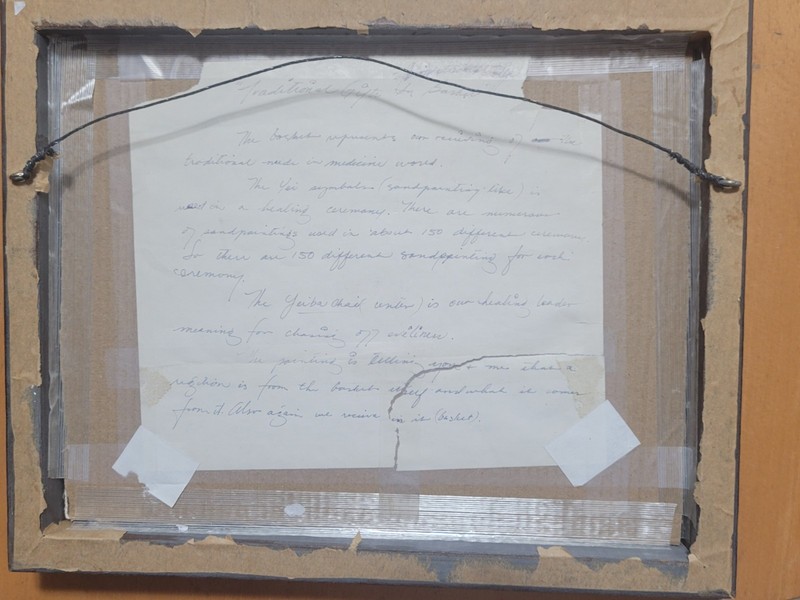 Traditional
The basket represents our
traditional needs in medicine world.
The Yei symbolas (sandpainting like) is
used in a healing ceremony. There are numerous
of sandpaintings used in about 150 different
So there are 150 different sandpainting for each
ceremony.
The Yeibachai is our healing leader
meaning for chasing off
painting is telling you & me that a
religion is from the basket itself and what it comes
from it Also again we in it (basket).